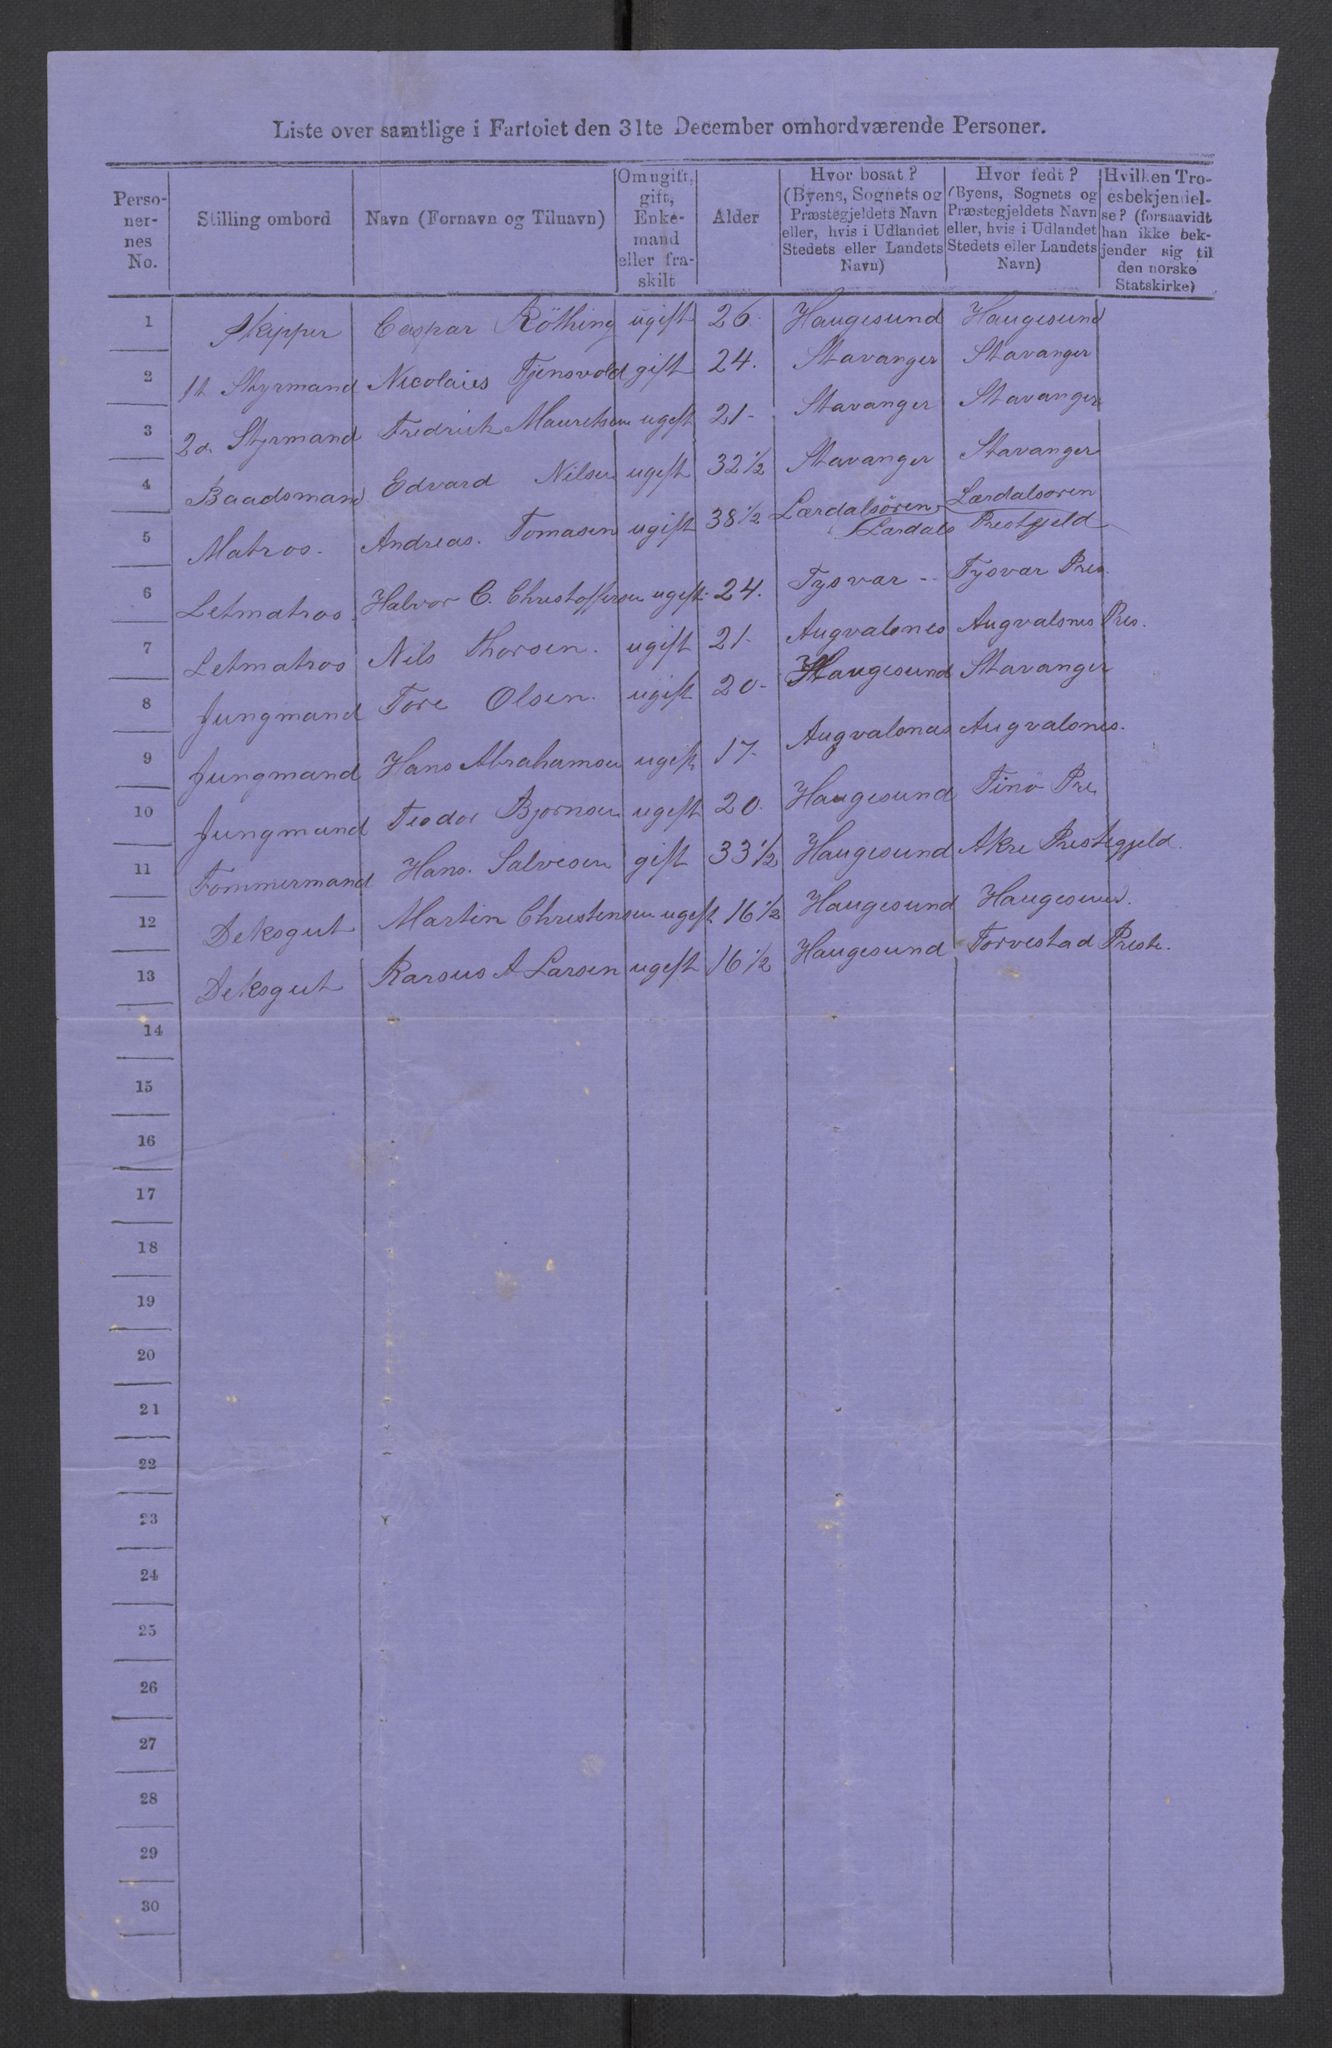 Liste over samtlige i Fartoiet den 31te December ombordværende Personer.
Perso-
ner-
nes
No.
Stilling ombord
Navn (Fornavn og Tilnavn)
Om ugift,
gift,
Enke-
mand
eller fra-
skilt
Alder
Hvor bosat?
(Byens, Sognets og
Præstegjeldets Navn
eller, hvis i Udlandet
Stedets eller Landets
Navn)
Hvor fedt?
(Byens, Sognets og
Præstegjeldets Navn
eller, hvis i Udlandet
Stedets eller Landets
Navn)
Hvilken Tro-
esbekjendel-
se? (forsaavidt
han ikke bek-
jender sig til
den norske
Statskirke)
1 Skipper Caspar Röthing ugift 26. Haugesund Haugesund
2 1st Styrmand Nicolaies Tjensvold gift 24. Stavanger Stavanger
3 2d. Styrmand Fredrick Mauretsen ugeft 21- Stavanger Stavanger
4 Baadsmand Edvard Nilsen ugeft 32 1/2 Stavanger Stavanger
5 Matros. Andreas. Tomasen ugift 38 1/2 Lærdalsören Lærdalsoren
Lærdals Prestgjeld
6 Letmatros. Halvor C. Christoffersen ugeft. 24. Tysvar -- Tysvar Pres.
7 Letmatros Nils Thorsen. ugift 21- Augvalsnes Augvalsnes Pres.
8 Jungmand Tore Olsen. ugift 20- Haugesund Stavanger
9 Jungmand Hans Abrahamsen ugeft 17- Augvalsnas Augvalsnes.
10 Jungmand Teodor Bjornsen ugeft 20. Haugesund Finö Pre
11 Tommermand Hans. Salvesen gift 33 1/2 Haugesund Akre Prestegjeld.
12 Deksgut Martin Christensen ugeft 16 1/2 Haugesund Haugesund.
13 Deksgut Rasmus A Larsen ugeft 16 1/2 Haugesund Torvestad Preste.
14
15
16
17
18
19
20
21
22
23
24
25
26
27
28
29
30